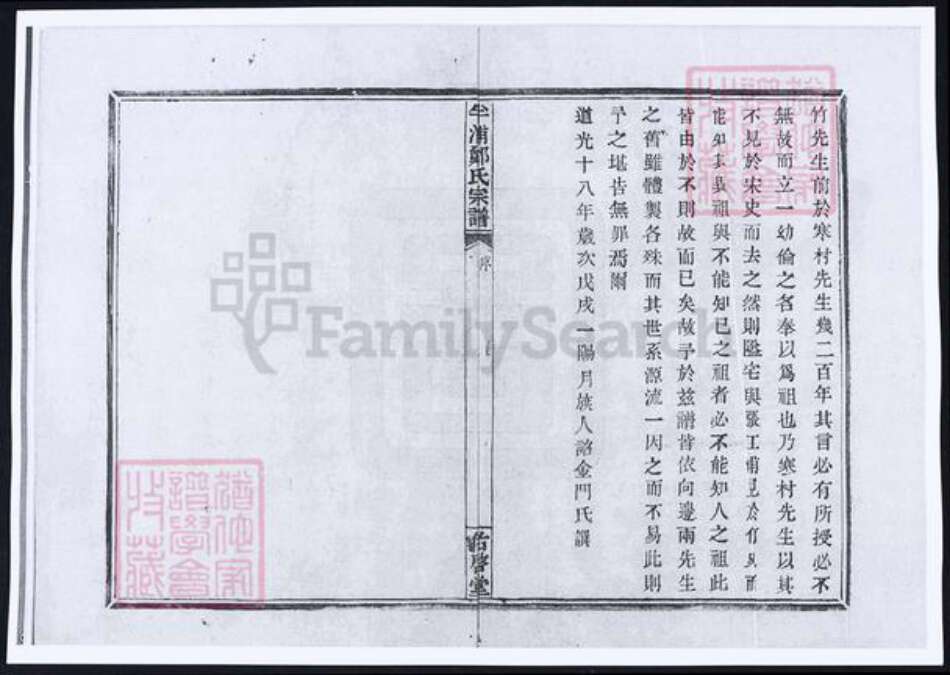 竹先生前於寒村先生幾二百年其言必有所授必不
無故而立一幼倫之名奉以爲祖也乃寒村先生以其
不見於宋史而去之然則 宅與張工 而
能知其 祖與不能知已之祖者必不能知人之祖此
皆由於不則故而已矣故予於兹譜皆依向邊兩先生
之舊雖體製各殊而其世系源流一因之而不易此則
予之堪告無罪焉爾
道光十八年歲次戊戌一陽月族人 金門氏譔
半浦鄭氏宗譜
序
一
啓堂
FamilySearch